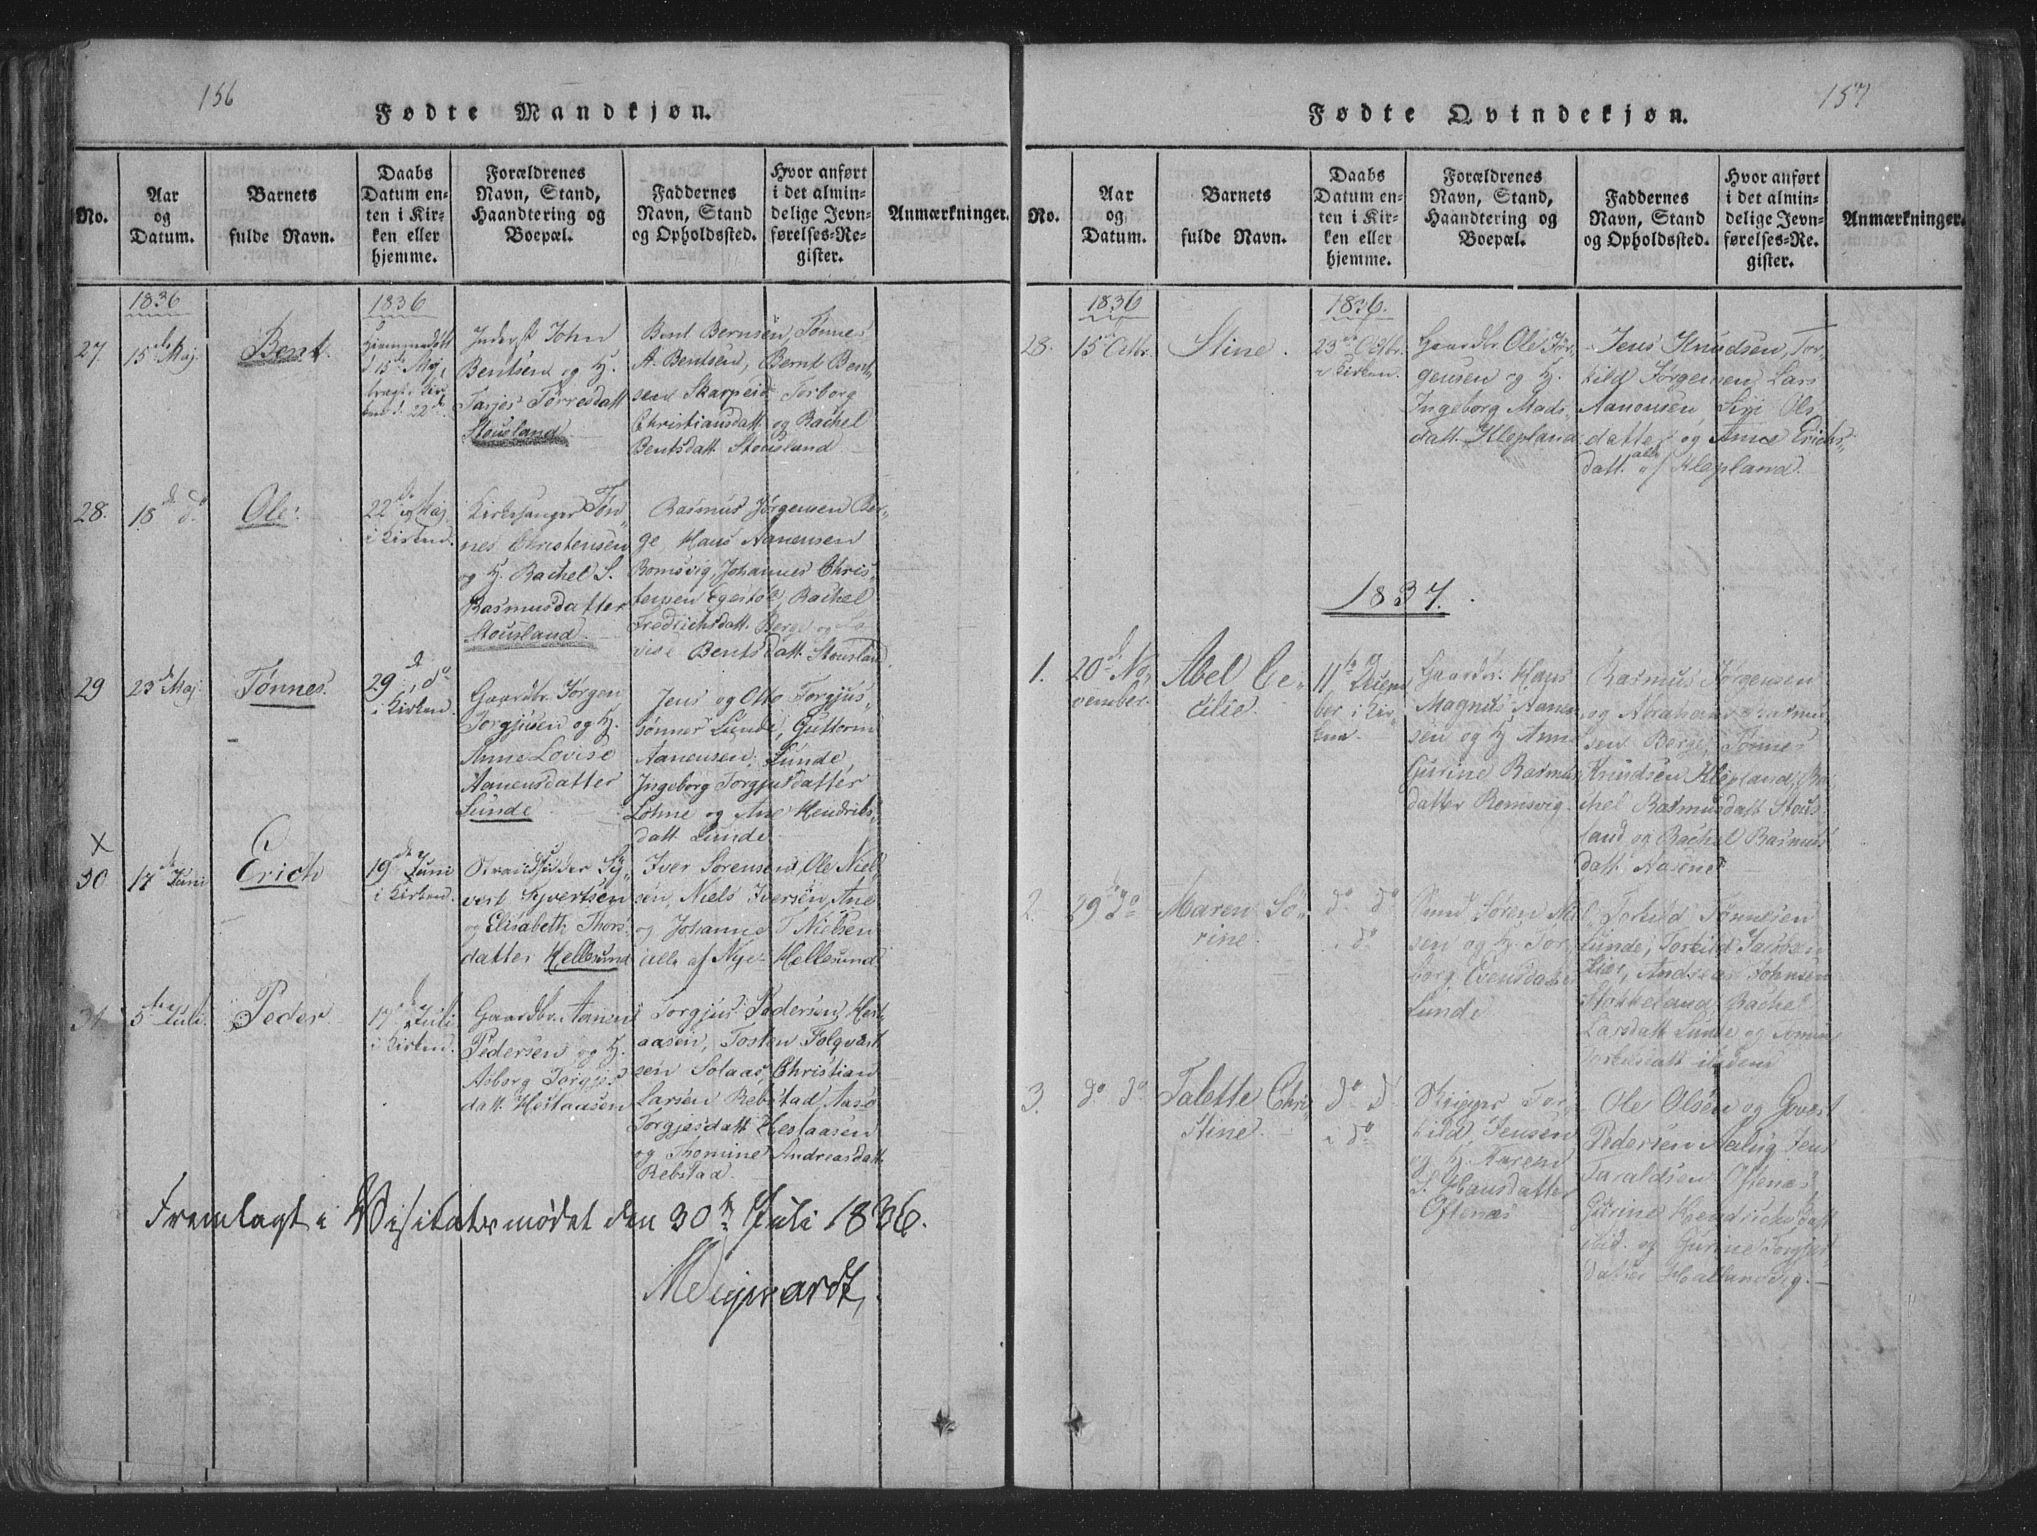 156
Fødte Mandkjøn.
No.
Aar
og
Datum.
Barnets
fulde Navn.
Daabs
Datum en-
ten i Kir-
ken eller
hjemme.
Forældrenes
Navn, Stand,
Haandtering og
Boepæl.
Faddernes
Navn, Stand
og Opholdssted.
Hvor anført
i det almin-
delige Jevn-
førelses-Re-
gister.
Anmærkninger.
1836
1836
27.
15de Maj
Bent.
Hjemmedøbt
d 15de Maj,
22de
Inderst John
Bentsen og H.
Tarjes Torresdatt
Stousland
Bent Berntsen, Tønnes
A. Bentsen, Bernt Bent-
sen Skarpeid Torborg
Christiansdatt og Rachel
Bentsdatt Stousland
28.
18de do
Ole.
22de Maj
i Kirken.
Kirkesanger Tøn-
nes Christensen
og H. Rachel S.
Rasmusdatter
Stousland.
Rasmus Jørgensen Ber-
ge, Hans Aanensen
Romsvig, Johannes Chris-
tensen Egestøl Rachel
Fredrichsdatt. Berge og Lo-
vise Bentsdatt. Stousland.
29
23de Maj
Tønnes.
29de do
i Kirken.
Gaardbr. Jørgen
Torgjusen og H.
Anne Lovise
Aanensdatter
Lunde
Jens og Otto Torgjus-
sønner Lunde, Guttorm
Aanensen, Lunde,
Ingeborg Torgjusdatter
Lohne og Ane Hendrichs-
datt Lunde
X
30
17de Juni
Erich
19de Juni
i Kirken.
Strandsidder Sy-
vert Syvertsen
og Elisabeth Thors-
datter Hellesund
Iver Sørensen, Ole Niel-
sen, Niels Iversen, Ane
og Johanne T Nielsen
alle af Nye-Hellesund
31.
5te Juli.
Peder
17de Juli
i Kirken.
Gaardbr. Aanen
Pedersen og H.
Asborg Torgjus
datt. Hestaasen
Torgjus Pedersen Hest
aasen, Tosten Folqvart
sen Solaas, Christian
Larsen Rebstad, Aase
Torgjusdatt Hestaasen
og Thomine Andreasdatt.
Rebstad.
Fremlagt i Visitatsmødet den 30te Juli 1836.
157
Fødte Qvindekjøn.
No.
Aar
og
Datum.
Barnets
fulde Navn.
Daabs
Datum en-
ten i Kir-
ken eller
hjemme.
Forældrenes
Navn, Stand,
Haandtering og
Boepæl.
Faddernes
Navn, Stand
og Opholdssted.
Hvor anført
i det almin-
delige Jevn-
førelses-Re-
gister.
Anmærkninger.
1836
1836.
28.
15de Octbr.
Stine.
23de Octbr.
i Kirken.
Gaardbr. Ole Jør-
gensen og H.
Ingeborg Mads-
datt. Klepland
Jens Knudsen, Tor-
kild Jørgensen, Lars
Aanonsen Siri Ols
datter og Anne Erichs-
datt. alle af Klepland.
1837.
1.
20de No-
vember.
Abel Ce-
cilie.
11te Decem-
ber i Kir-
ken.
Gaardbr. Hans
Magnus Aanen-
sen og H. Anne
Gurine Rasmus
datter Romsvig.
Rasmus Jørgensen
og Abraham Rasmus
sen Berge, Tønnes
Knudsen Klepland, Ra-
chel Rasmusdatt Stous
land og Rachel Rasmus
datt
2.
29 do
Maren Sø-
rine.
do do
i do
Søren
sen og H. Tor-
borg Evensdatter
Lunde
Torkild Tønnesen
Lunde, Torkild Jacobsen
Andreas Johnsen
Stokkeland, Rachel
Larsdatt Lunde og
3.
do do
Talette Chri-
stine.
do do
i do
Skipper Tor-
kild Jensen
og H. Karen
S. Hansdatter
Oftenæs
Ole Olsen og Govert
Pedersen Aalvig Jens
Taraldsen Oftenæs
Gurine Hendrichsdatt
ibid. og Gurine Torgjus
datter Hallandvig.